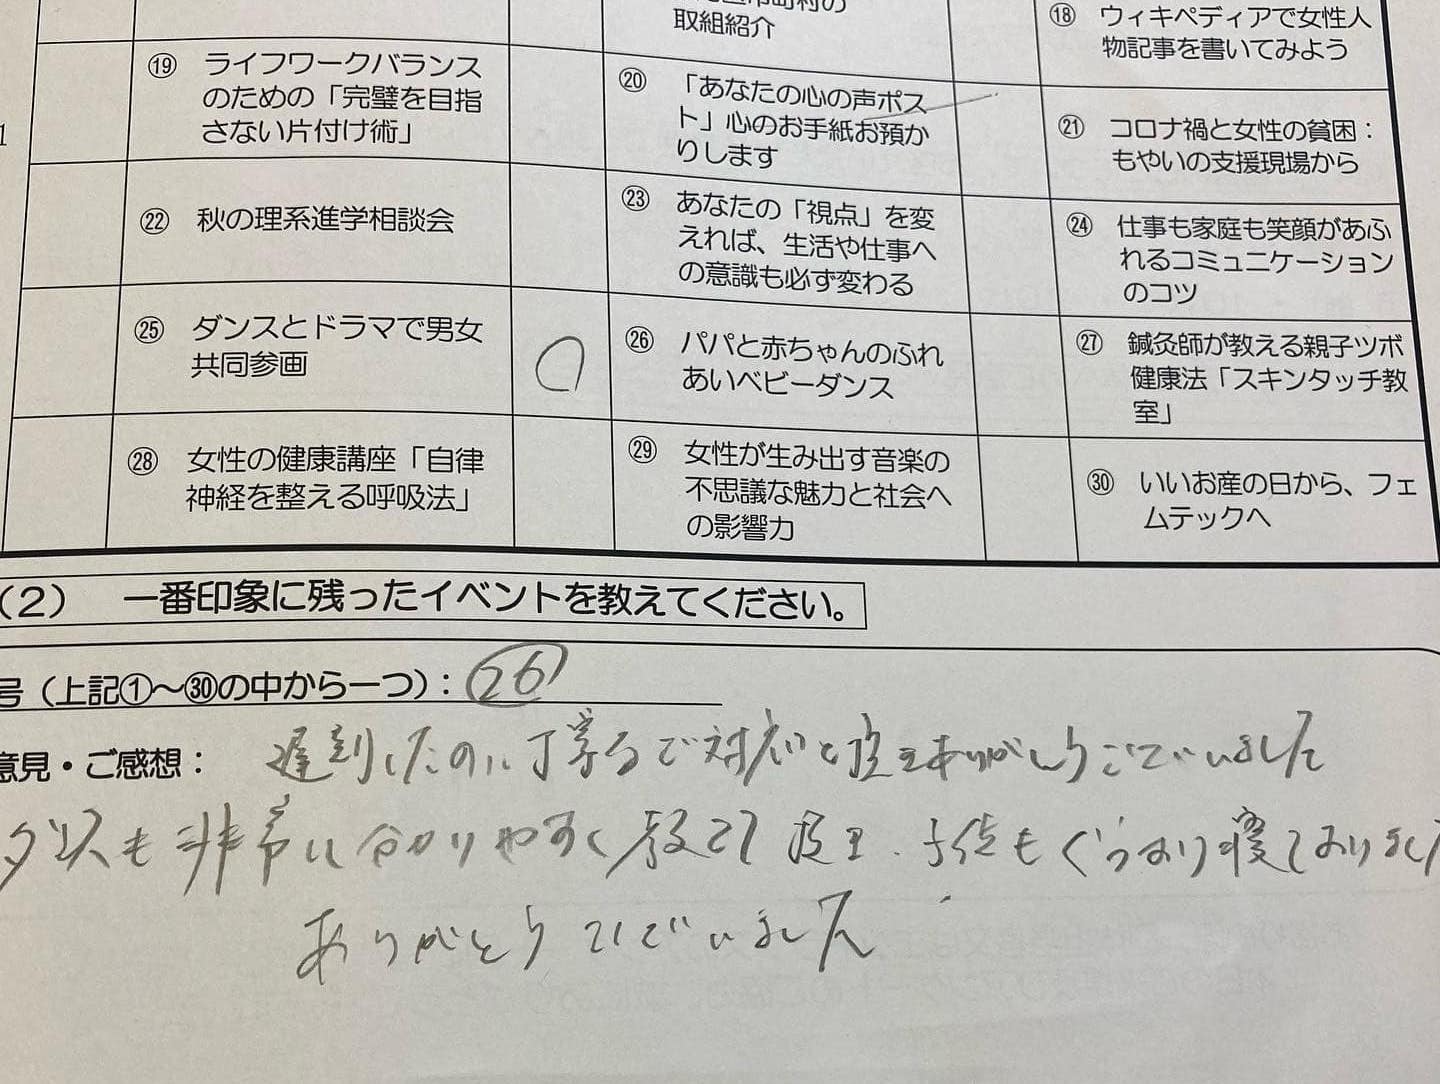 取組紹介
⑱ ウィキペディアで女性人
物記事を書いてみよう
⑲ ライフワークバランス
のための「完璧を目指
さない片付け術」
⑳ 「あなたの心の声ポス
ト」心のお手紙お預か
りします
㉑ コロナ禍と女性の貧困：
もやいの支援現場から
㉒ 秋の理系進学相談会
㉓ あなたの「視点」を変
えれば、生活や仕事へ
の意識も必ず変わる
㉔ 仕事も家庭も笑顔があふ
れるコミュニケーション
のコツ
㉕ ダンスとドラマで男女
共同参画
○
㉖ パパと赤ちゃんのふれ
あいベビーダンス
㉗ 鍼灸師が教える親子ツボ
健康法「スキンタッチ教
室」
㉘ 女性の健康講座「自律
神経を整える呼吸法」
㉙ 女性が生み出す音楽の
不思議な魅力と社会へ
の影響力
㉚ いいお産の日から、フェ
ムテックへ
（2） 一番印象に残ったイベントを教えてください。
号（上記①～㉚の中から一つ）：㉖
意見・ご感想： 遅刻したのに丁寧な対応ありがとうございました
ダンスも非常に分かりやすく教えて 子供もぐっすり寝ておりました
ありがとうございました